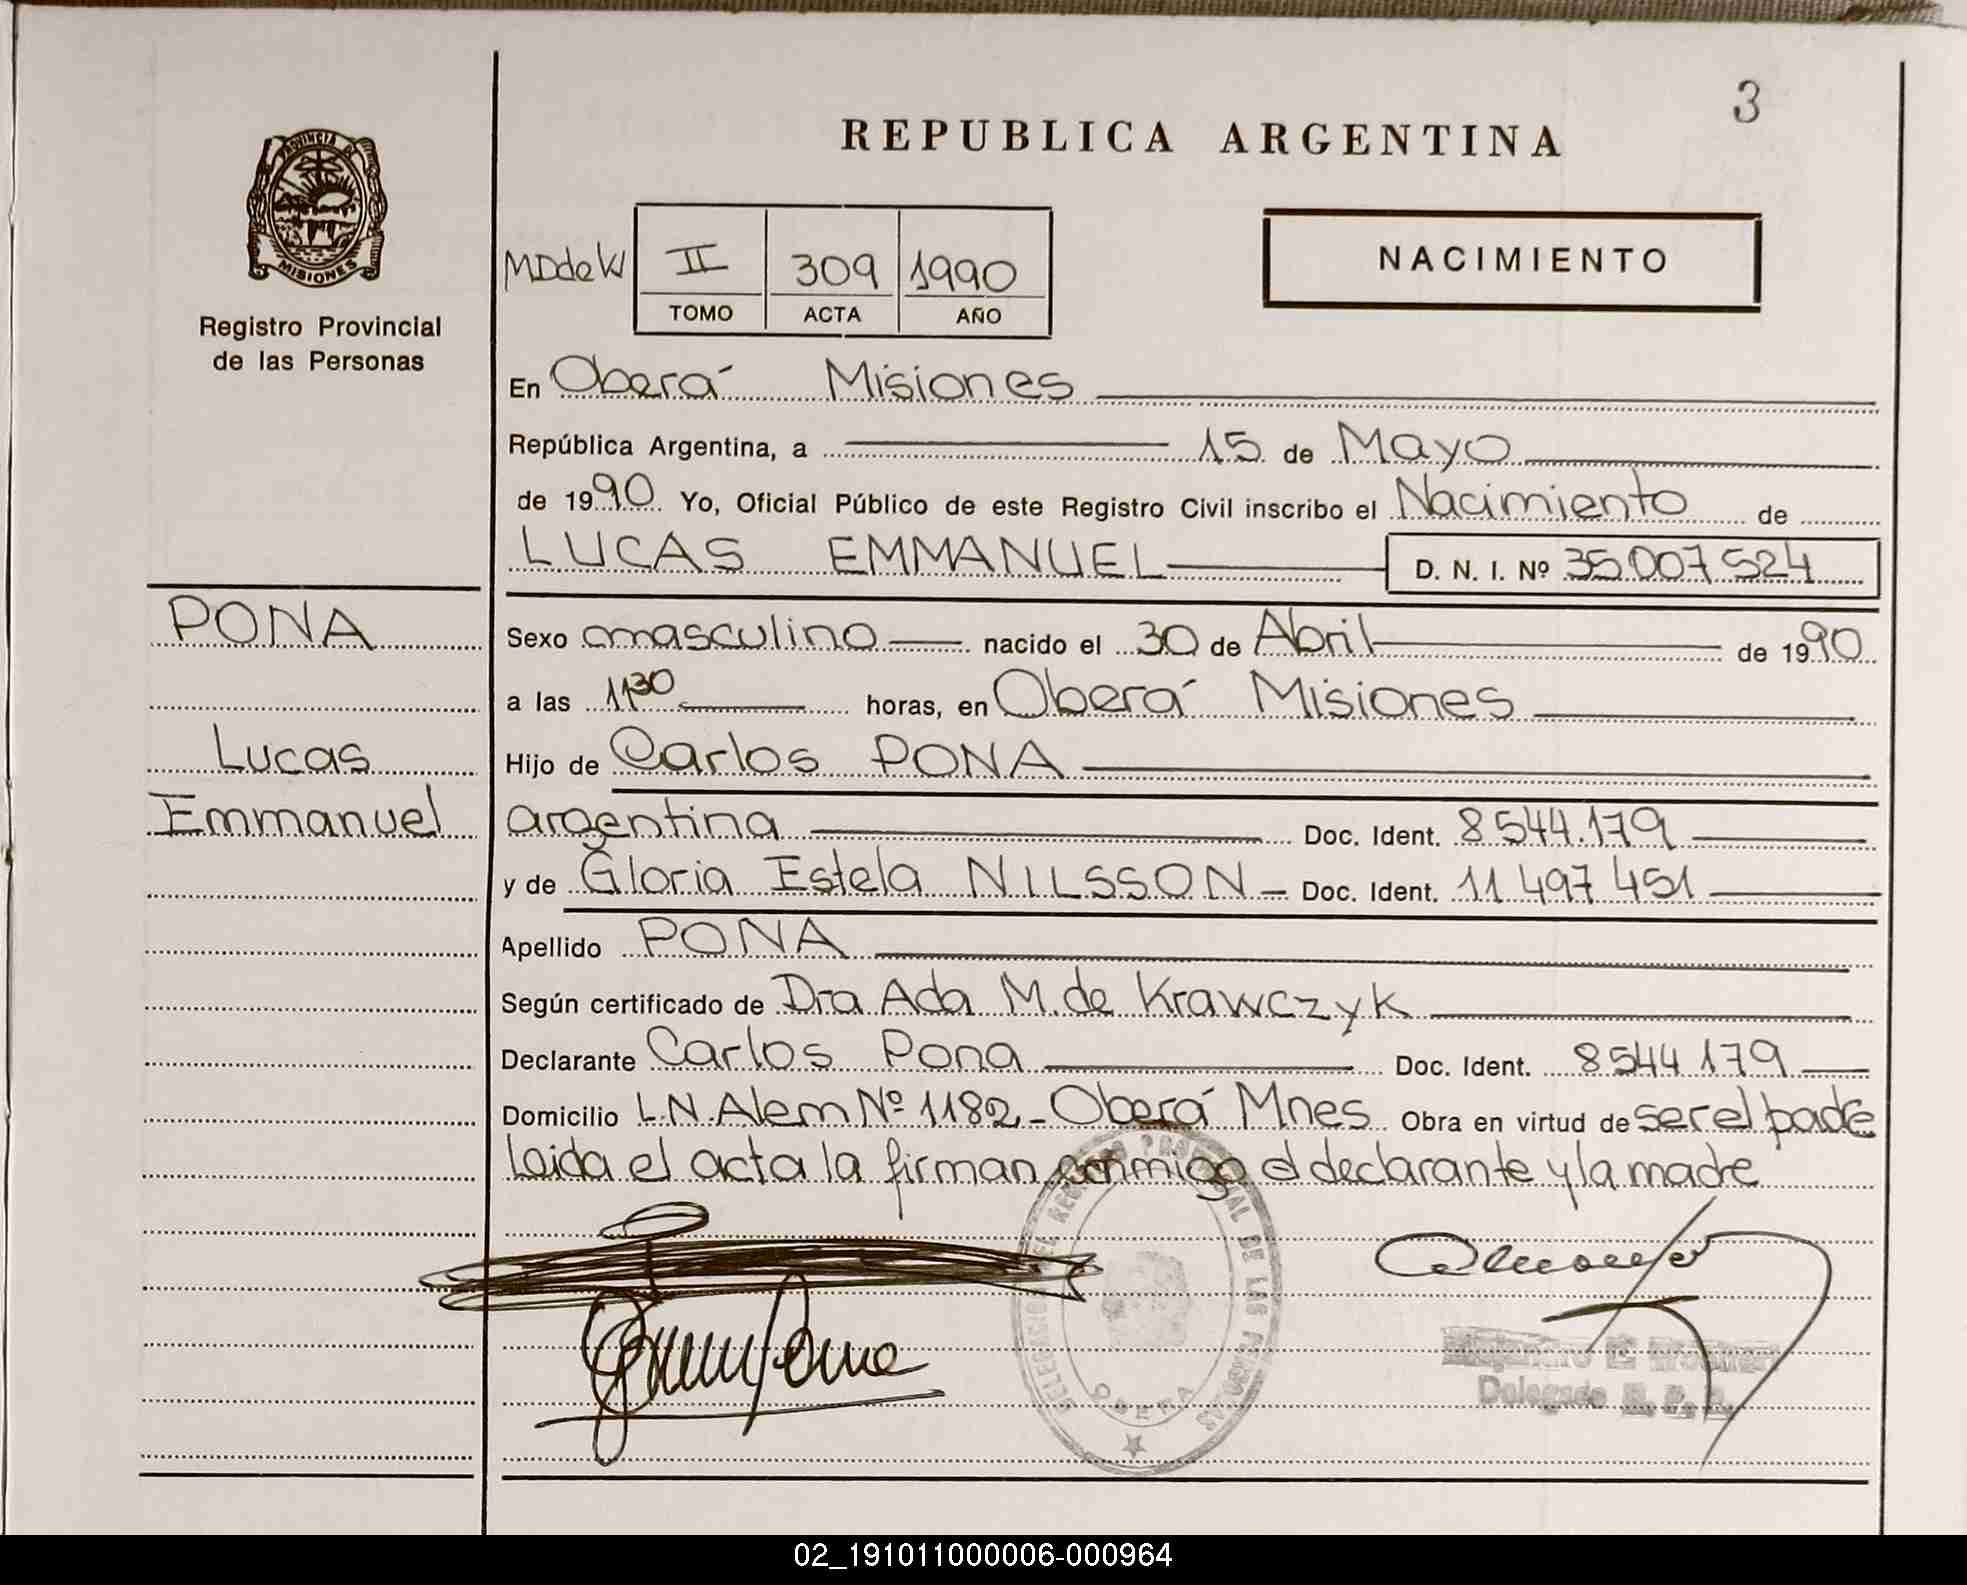 3
REPUBLICA ARGENTINA
PROVINCIA DE
MISIONES
Registro Provincial
de las Personas
NACIMIENTO
MDdeK II 309 1990
TOMO ACTA AÑO
En Oberá Misiones
República Argentina, a 15 de Mayo
de 1990 Yo, Oficial Público de este Registro Civil inscribo el Nacimiento de
LUCAS EMMANUEL D. N. I. Nº 35.007.524
PONA
Lucas
Emmanuel
Sexo masculino nacido el 30 de Abril de 1990
a las 11 30 horas, en Oberá Misiones
Hijo de Carlos PONA
argentina Doc. Ident. 8.544.179
y de Gloria Estela NILSSON Doc. Ident. 11.497.451
Apellido PONA
Según certificado de Dra Ada M. de Krawczyk
Declarante Carlos Pona Doc. Ident. 8544179
Domicilio L.N.Alem Nº 1182 - Oberá Mnes Obra en virtud de ser el padre
Leida el acta la firman conmigo el declarante y la madre
DELEGACION DEL REGISTRO PROVINCIAL DE LAS PERSONAS
OBERA
Delegado R. P. P.
02_191011000006-000964